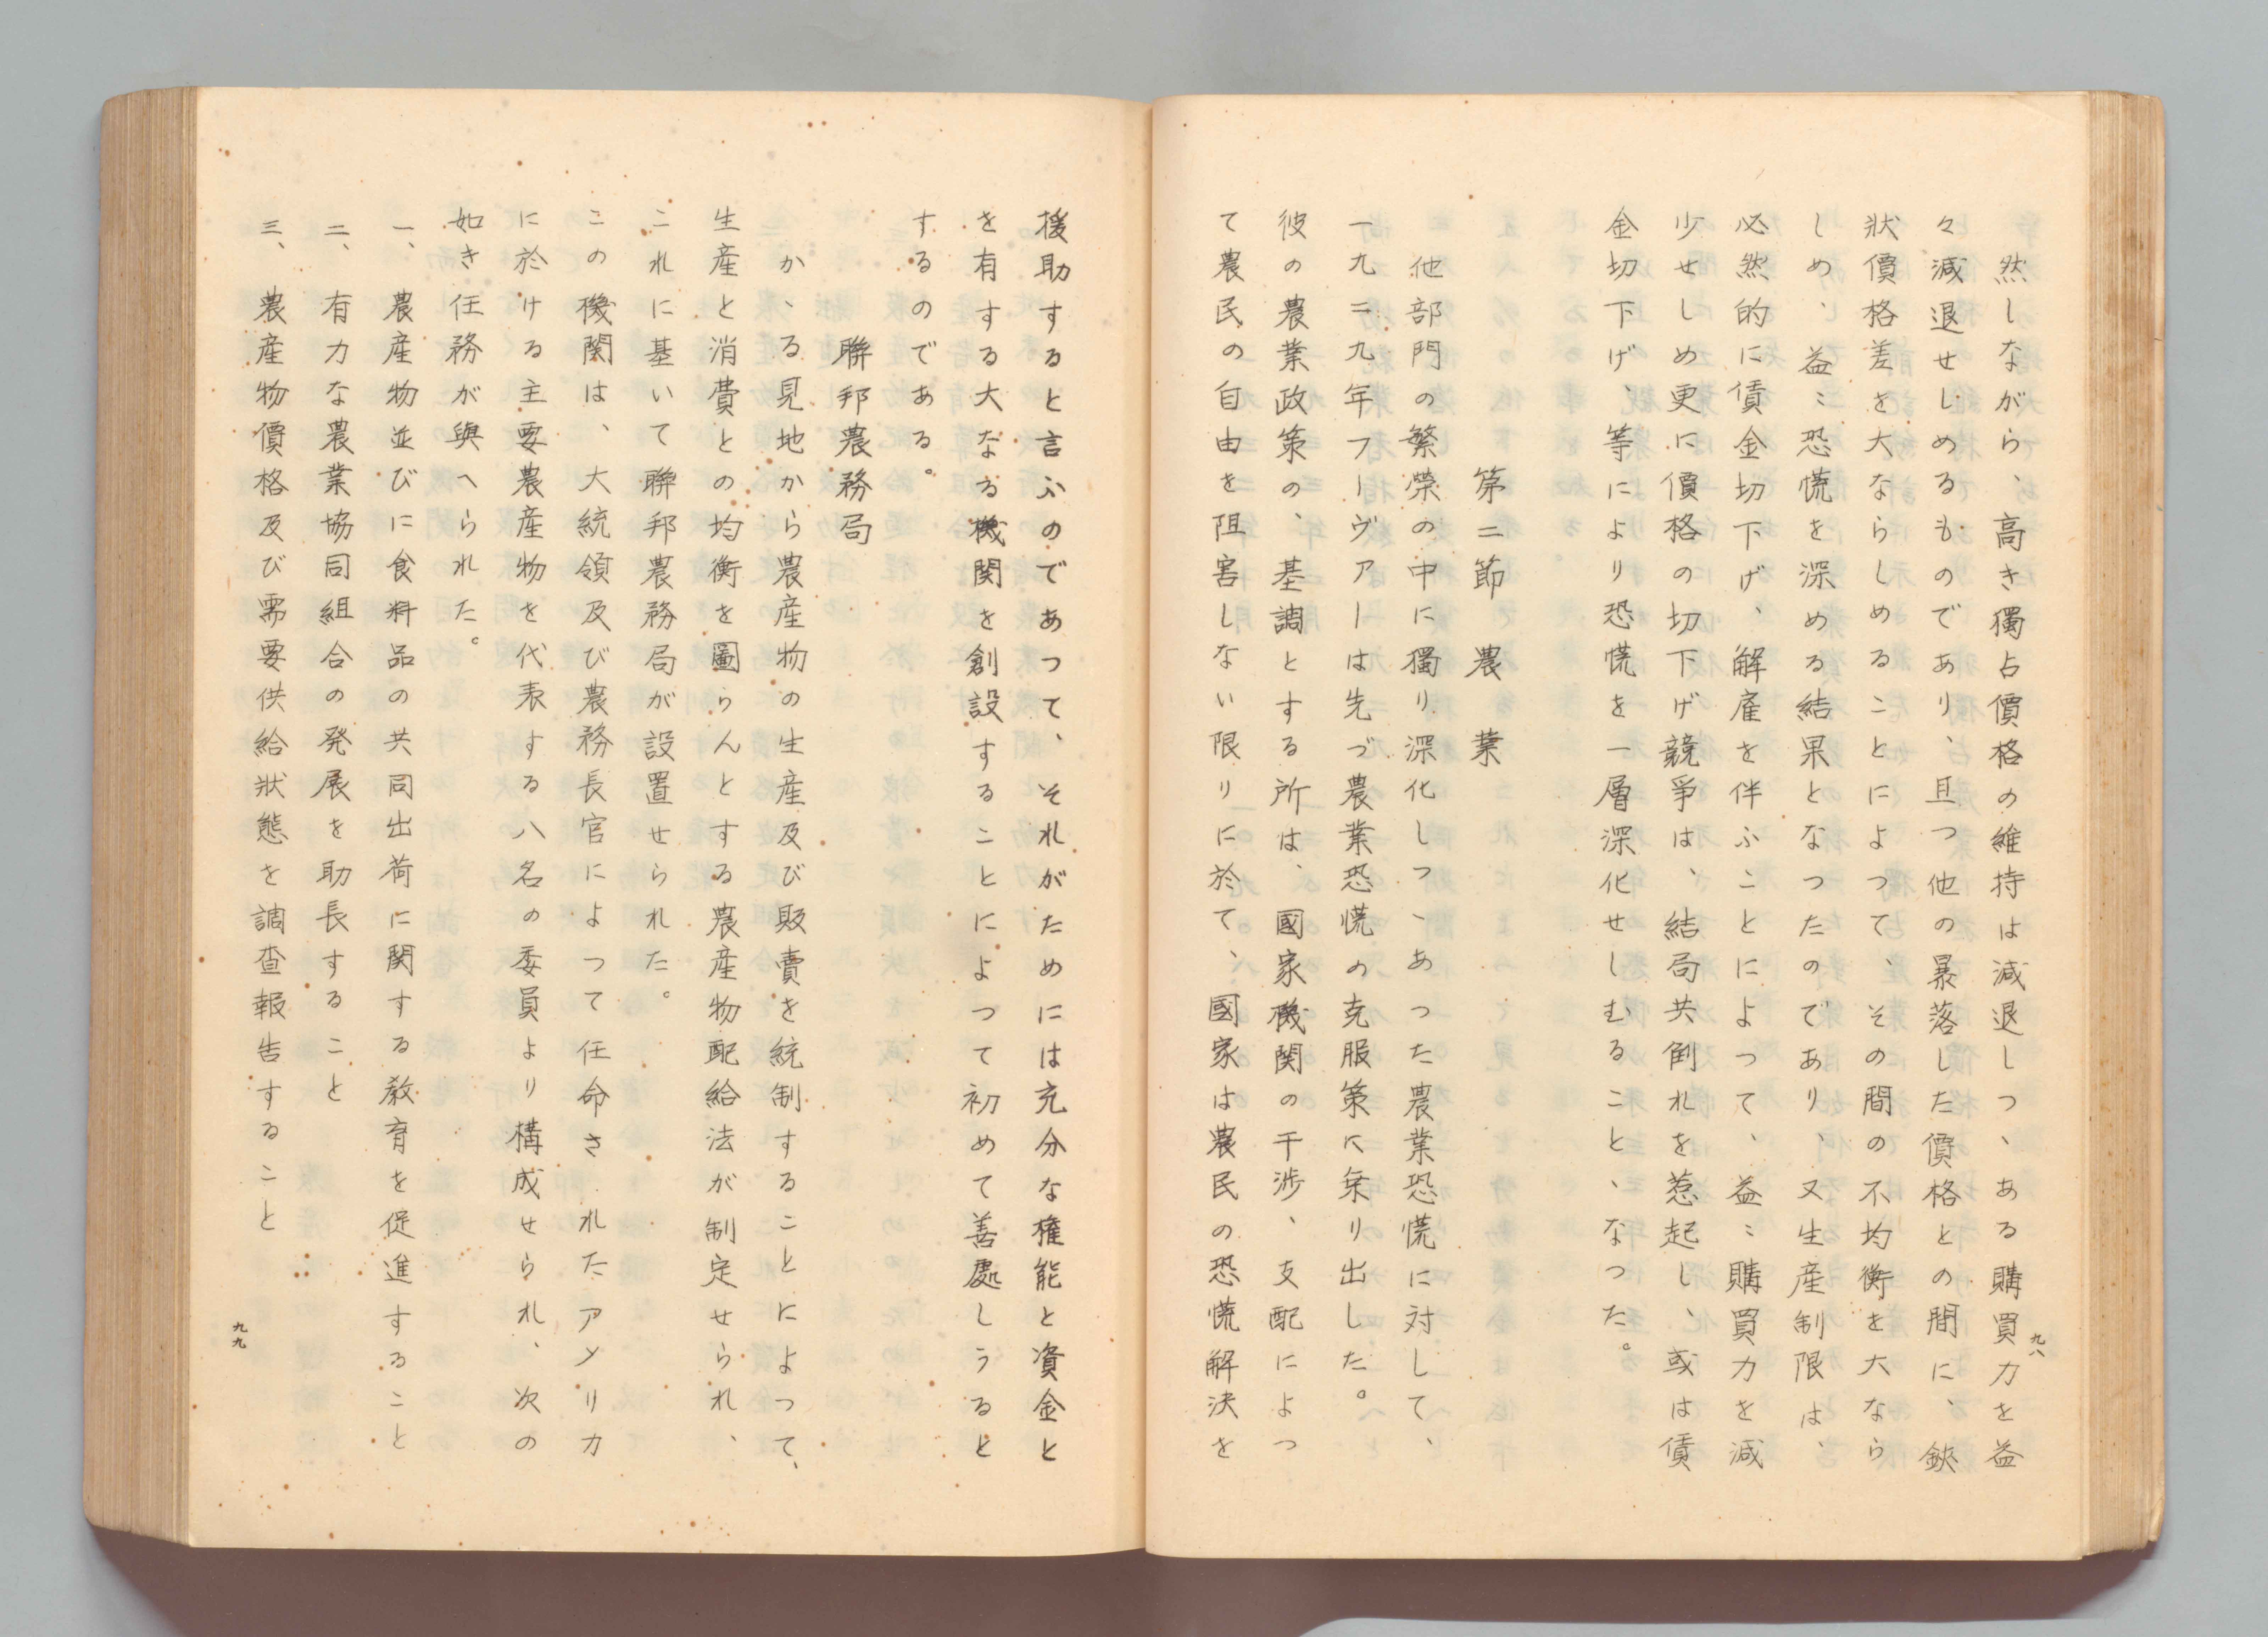 然しながら、高き獨占價格の維持は減退しつゝある購買力を益
々減退せしめるものであり、且つ他の暴落した價格との間に、鋏
狀價格差を大ならしめることによつて、その間の不均衡を大なら
しめ、益〻恐慌を深める結果となつたのであり、又生産制限は、
必然的に賃金切下げ、解雇を伴ふことによつて、益〻購買力を減
少せしめ更に價格の切下げ競爭は、結局共倒れを惹起し、或は賃
金切下げ、等により恐慌を一層深化せしむることゝなつた。
第二節　農　業
他部門の繁榮の中に獨り深化しつゝあつた農業恐慌に対して、
一九二九年フーヴアーは先づ農業恐慌の克服策に乗り出した。
彼の農業政策の、基調とする所は、國家機関の干渉、支配によつ
て農民の自由を阻害しない限りに於て、國家は農民の恐慌解決を
九八
援助すると言ふのであつて、それがためには充分な権能と資金と
を有する大なる機関を創設することによつて初めて善處しうると
するのである。
聯邦農務局
かゝる見地から農産物の生産及び販賣を統制することによつて、
生産と消費との均衡を圖らんとする農産物配給法が制定せられ、
これに基いて聯邦農務局が設置せられた。
この機関は、大統領及び農務長官によつて任命されたアメリカ
に於ける主要農産物を代表する八名の委員より構成せられ、次の
如き任務が與へられた。
一、農産物並びに食料品の共同出荷に関する敎育を促進すること
二、有力な農業協同組合の発展を助長すること
三、農産物價格及び需要供給狀態を調査報告すること
九九